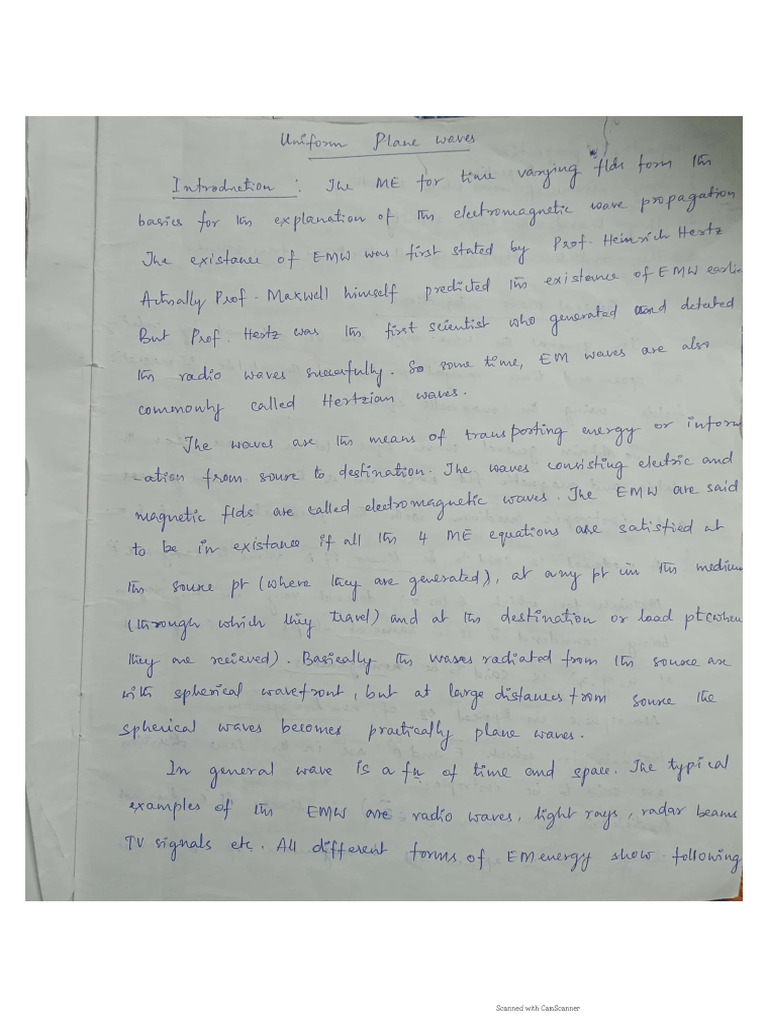 Uniform Plane waves
Introduction : The ME for time varying flds form the
basics for the explanation of the electromagnetic wave propagation
The existance of EMW was first stated by Prof. Heinrich Hertz
Actually Prof. Maxwell himself predicted the existence of EMW earlie
But Prof. Hertz was the first scientist who generated and detected
the radio waves succesfully. So some time, EM waves are also
commonly called Hertzian waves.
The waves are the means of transporting energy or inform
-ation from source to destination. The waves consisting electric and
magnetic flds are called electromagnetic waves. The EMW are said
to be in existance if all the 4 ME equations are satisfied at
the source pt (where they are generated), at any pt in the medium
(through which they travel) and at the destination or load pt (when
they are recieved). Basically the waves radiated from the source are
with spherical wavefront, but at large distances from source the
spherical waves becomes practically plane waves.
In general wave is a fn of time and space. The typical
examples of the EMW are radio waves, light rays, radar beams
TV signals etc. All different forms of EM energy show following
Scanned with CamScanner